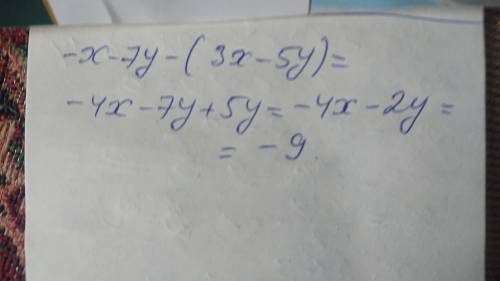 -x-7y-(3x-5y)=
-4x-7y+5y=-4x-2y=
= -9